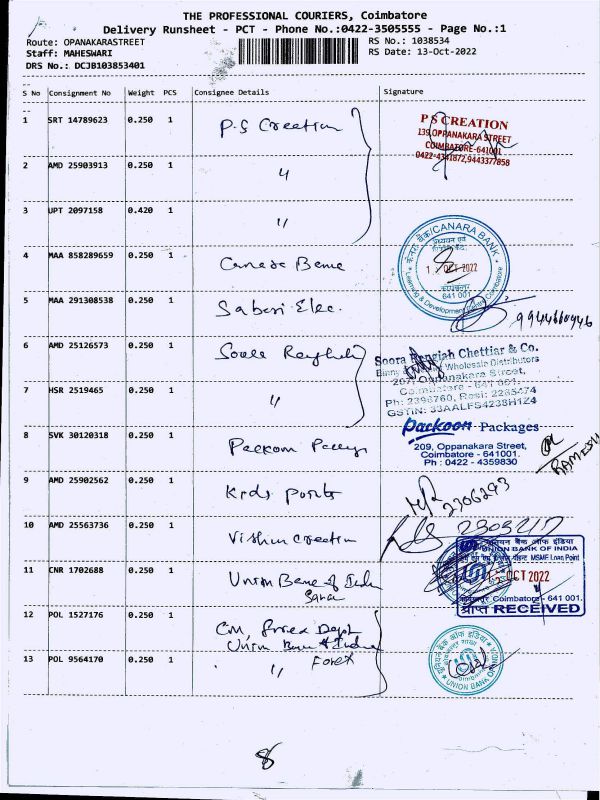 THE PROFESSIONAL COURIERS, Coimbatore
Delivery Runsheet - PCT - Phone No.:0422-3505555 - Page No.:1
Route: OPANAKARASTREET
Staff: MAHESWARI
DRS No.: DCJB103853401
RS No.: 1038534
RS Date: 13-Oct-2022
S No Consignment No Weight PCS Consignee Details Signature
1 SRT 14789623 0.250 1 P.S Creation
P S CREATION
139, OPPANAKARA STREET
COIMBATORE-641001
0422-4341872,9443377858
2 AMD 25903913 0.250 1 "
3 UPT 2097158 0.420 1 "
4 MAA 858289659 0.250 1
CANARA BANK
OCT 2022
641 001
Learning & Development Coimbatore
5 MAA 291308538 0.250 1 Sabari Elec.
6 AMD 25126573 0.250 1
Soora Rengiah Chettiar & Co.
Wholesale Distributors
207, Oppanakara Street,
Coimbatore - 641 001.
Ph: 2396760, Resi: 2265474
GSTIN: 33AALFS4238H1Z4
7 HSR 2519465 0.250 1 "
8 SVK 30120318 0.250 1
Packoon Packages
209, Oppanakara Street,
Coimbatore - 641001.
Ph : 0422 - 4359830
RAMESH
9 AMD 25902562 0.250 1 Kids Point
2306293
10 AMD 25563736 0.250 1 Creation
11 CNR 1702688 0.250 1 Union Bank of India
यूनियन बैंक ऑफ इंडिया
UNION BANK OF INDIA
MSME Loan Point
OCT 2022
Coimbatore - 641 001.
प्राप्त RECEIVED
12 POL 1527176 0.250 1 Forex Dept
Union Bank of India
13 POL 9564170 0.250 1 " Forex
यूनियन बैंक ऑफ इंडिया
UNION BANK OF INDIA
8